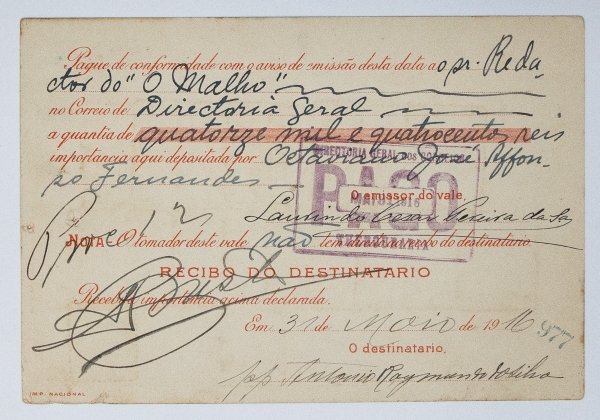 Pague, de conformidade com o aviso de emissão desta data a o sr. Reda-
ctor do "O Malho"
no Correio de Directoria Geral
a quantia de quatorze mil e quatrocentos reis
importancia aqui depositada por Octaviano José Affon-
so Fernandes
DIRECTORIA GERAL DOS CORREIOS
PAGO
MAIO 1916
THESOURARIA
O emissor do vale,
Laurindo Cesar Pereira da
NOTA—O tomador deste vale não tem direito a aviso do destinatario.
RECIBO DO DESTINATARIO
Recebi a importancia acima declarada.
Em 31 de Maio de 1916
977
O destinatario,
pp Antonio Raymundo da Silva
IMP. NACIONAL